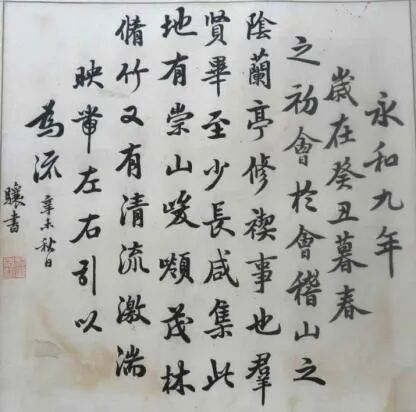 永和九年
歲在癸丑暮春
之初會於會稽山之
陰蘭亭修禊事也羣
賢畢至少長咸集此
地有崇山峻嶺茂林
脩竹又有清流激湍
映帶左右引以
為流 辛未秋日
驤書